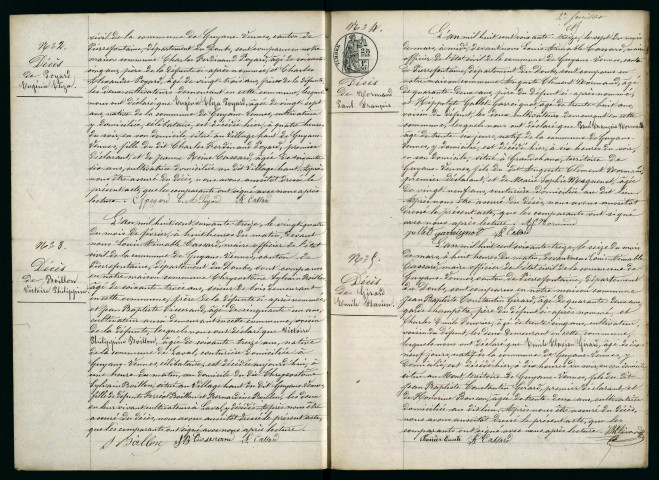 N° 22.
Décès
De Poyard
Virginie Elisa.
civil de la commune de Guyans-Vennes, canton de
Pierrefontaine, département du Doubs, sont comparus en notre
maison commune Charles Ferdinand Poyard, âgé de soixante
cinq ans, père de la défunte ci après nommée, et Charles
Poyard, âgé de vingt trois ans, frère de la défunte,
les deux cultivateurs demeurant en cette commune, lesquels
nous ont déclaré que Virginie Elisa Poyard, âgée de vingt sept
ans, native de la commune de Guyans-Vennes, cultivatrice
y domiciliée, célibataire, est décédée hier, à quatre heures
du soir, en son domicile, situé au Village haut de Guyans-
Vennes, fille du dit Charles Ferdinand Poyard, premier
déclarant et de Jeanne Cassard, âgée de soixante
six ans, cultivatrice domiciliée au dit Village haut. Après
nous être assuré du décès, nous avons aussitôt dressé le
présent acte, que les comparants ont signé avec nous après
lecture.
N° 23.
Décès
De Boillon
Victoire Philippine
L'an mil huit cent soixante treize, le vingt quatre
du mois de février, à huit heures du matin, devant
nous Louis Aimable Cassard, maire officier de l'état
civil de la commune de Guyans-Vennes, canton de
Pierrefontaine, département du Doubs, sont comparus en
notre maison commune Chrysostome Sylvain Boillon,
âgé de soixante treize ans, demeurant
en cette commune, frère de la défunte ci après nommée,
et Jean Baptiste âgé de cinquante un ans,
cultivateur aussi demeurant en cette commune, voisin
de la défunte, lesquels nous ont déclaré que Victoire
Philippine Boillon, âgée de soixante treize ans, native
de la commune de Laval, couturière domiciliée à
Guyans-Vennes, célibataire, est décédée aujourd'hui, à
une heure du matin, au domicile du dit Chrysostome
Sylvain Boillon, situé au Village haut du dit Guyans-Vennes,
fille de défunts Boillon et Bernardine Boillon, les deux
en leur vivant cultivateurs à Laval, y décédés. Après nous être
assuré du décès, nous avons aussitôt dressé le présent acte,
que les comparants ont signé avec nous après lecture.
S Boillon
N° 24.
Décès
De Normand
Paul François
L'an mil huit cent soixante treize, le sept du mois
de mars, à midi, devant nous Louis Aimable Cassard, maire
officier de l'état civil de la commune de Guyans-Vennes, canton
de Pierrefontaine, département du Doubs, sont comparus en
notre maison commune Auguste Clément Normand, âgé
de quarante deux ans, père du défunt ci après nommé,
et Hippolyte âgé de trente huit ans,
voisin du défunt, les deux cultivateurs demeurant en cette
commune, lesquels nous ont déclaré que Paul François Normand,
âgé de natif de la commune de Guyans-
Vennes, y domicilié, est décédé hier, à six heures du soir,
en son domicile, situé à Grandchamp, territoire de
Guyans-Vennes, fils du dit Auguste Clément Normand,
premier déclarant, et de Marie
âgée de vingt neuf ans, cultivatrice domiciliée au dit lieu.
Après nous être assuré du décès, nous avons aussitôt
dressé le présent acte, que les comparants ont signé
avec nous après lecture.
N° 25.
Décès
De Girard
Emile
L'an mil huit cent soixante treize, le seize du mois
de mars, à huit heures du matin, devant nous Louis Aimable
Cassard, maire officier de l'état civil de la commune de
Guyans-Vennes, canton de Pierrefontaine, département
du Doubs, sont comparus en notre maison commune
Jean Baptiste Constantin Girard, âgé de quarante deux ans,
garde champêtre, père du défunt ci après nommé, et
Charles Emile âgé de trente un ans, cultivateur,
voisin du défunt, les deux demeurant en cette commune,
lesquels nous ont déclaré que Emile Girard, âgé de
neuf jours, natif de la commune de Guyans-Vennes, y
domicilié, est décédé hier, à dix heures du soir, en son domicile
situé au territoire de Guyans-Vennes, fils du dit
Jean Baptiste Constantin Girard, premier déclarant, et
de âgée de trente deux ans, cultivatrice
domiciliée au dit lieu. Après nous être assuré du décès,
nous avons aussitôt dressé le présent acte, que les
comparants ont signé avec nous après lecture.